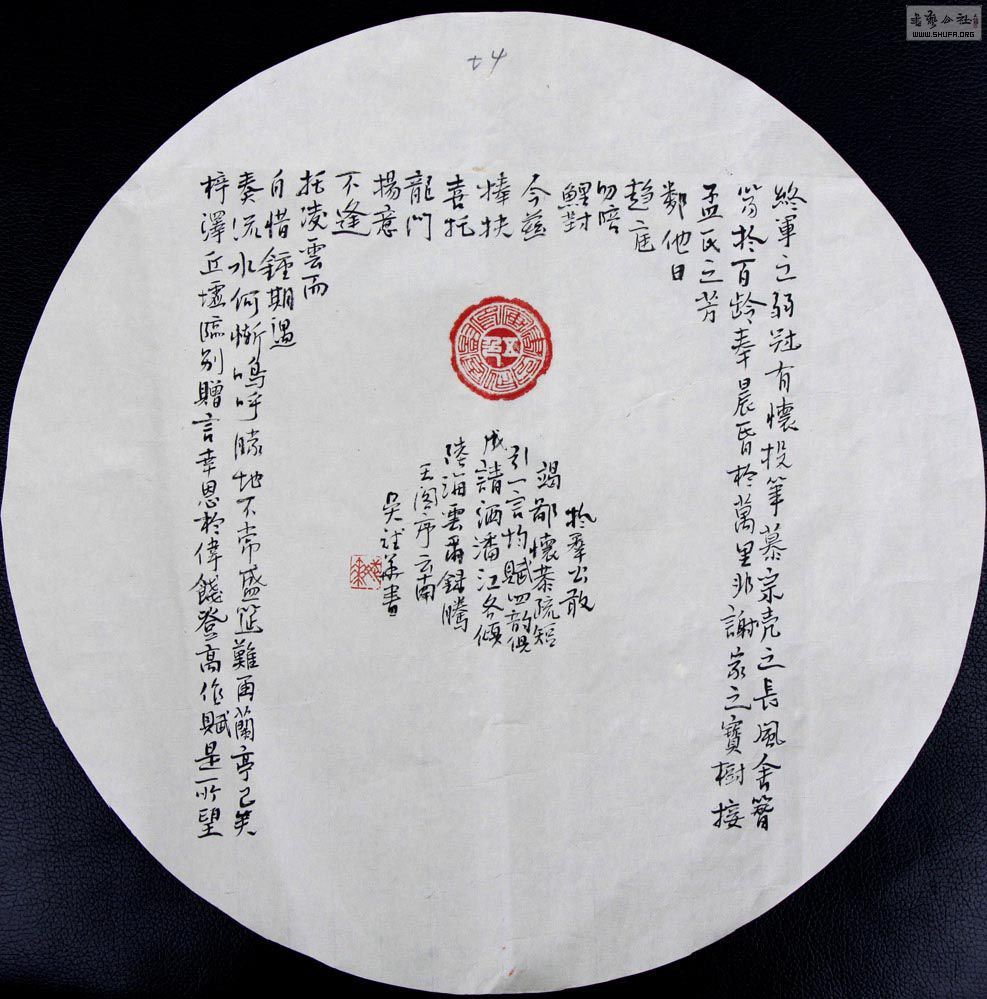 終軍之弱冠有懷投筆慕宗壳之長風舍簪
笏於百齡奉晨昏於萬里非謝家之寶樹接
孟氏之芳
鄰他日
趋庭
叨陪
鯉對
今茲
捧袂
喜托
龍門
揚意
不逢
托凌雲而
自惜鍾期遇
奏流水何慚嗚呼勝地不常盛筵難再蘭亭已矣
梓澤丘墟臨別贈言幸恩於偉餞登高作賦是所望
於羣公敢
竭鄙懷恭疏短
引一言均賦四韵俱
成請洒潘江各傾
陸海雲爾録騰
王阁序云南
吴華書
WWW.SHUFA.ORG